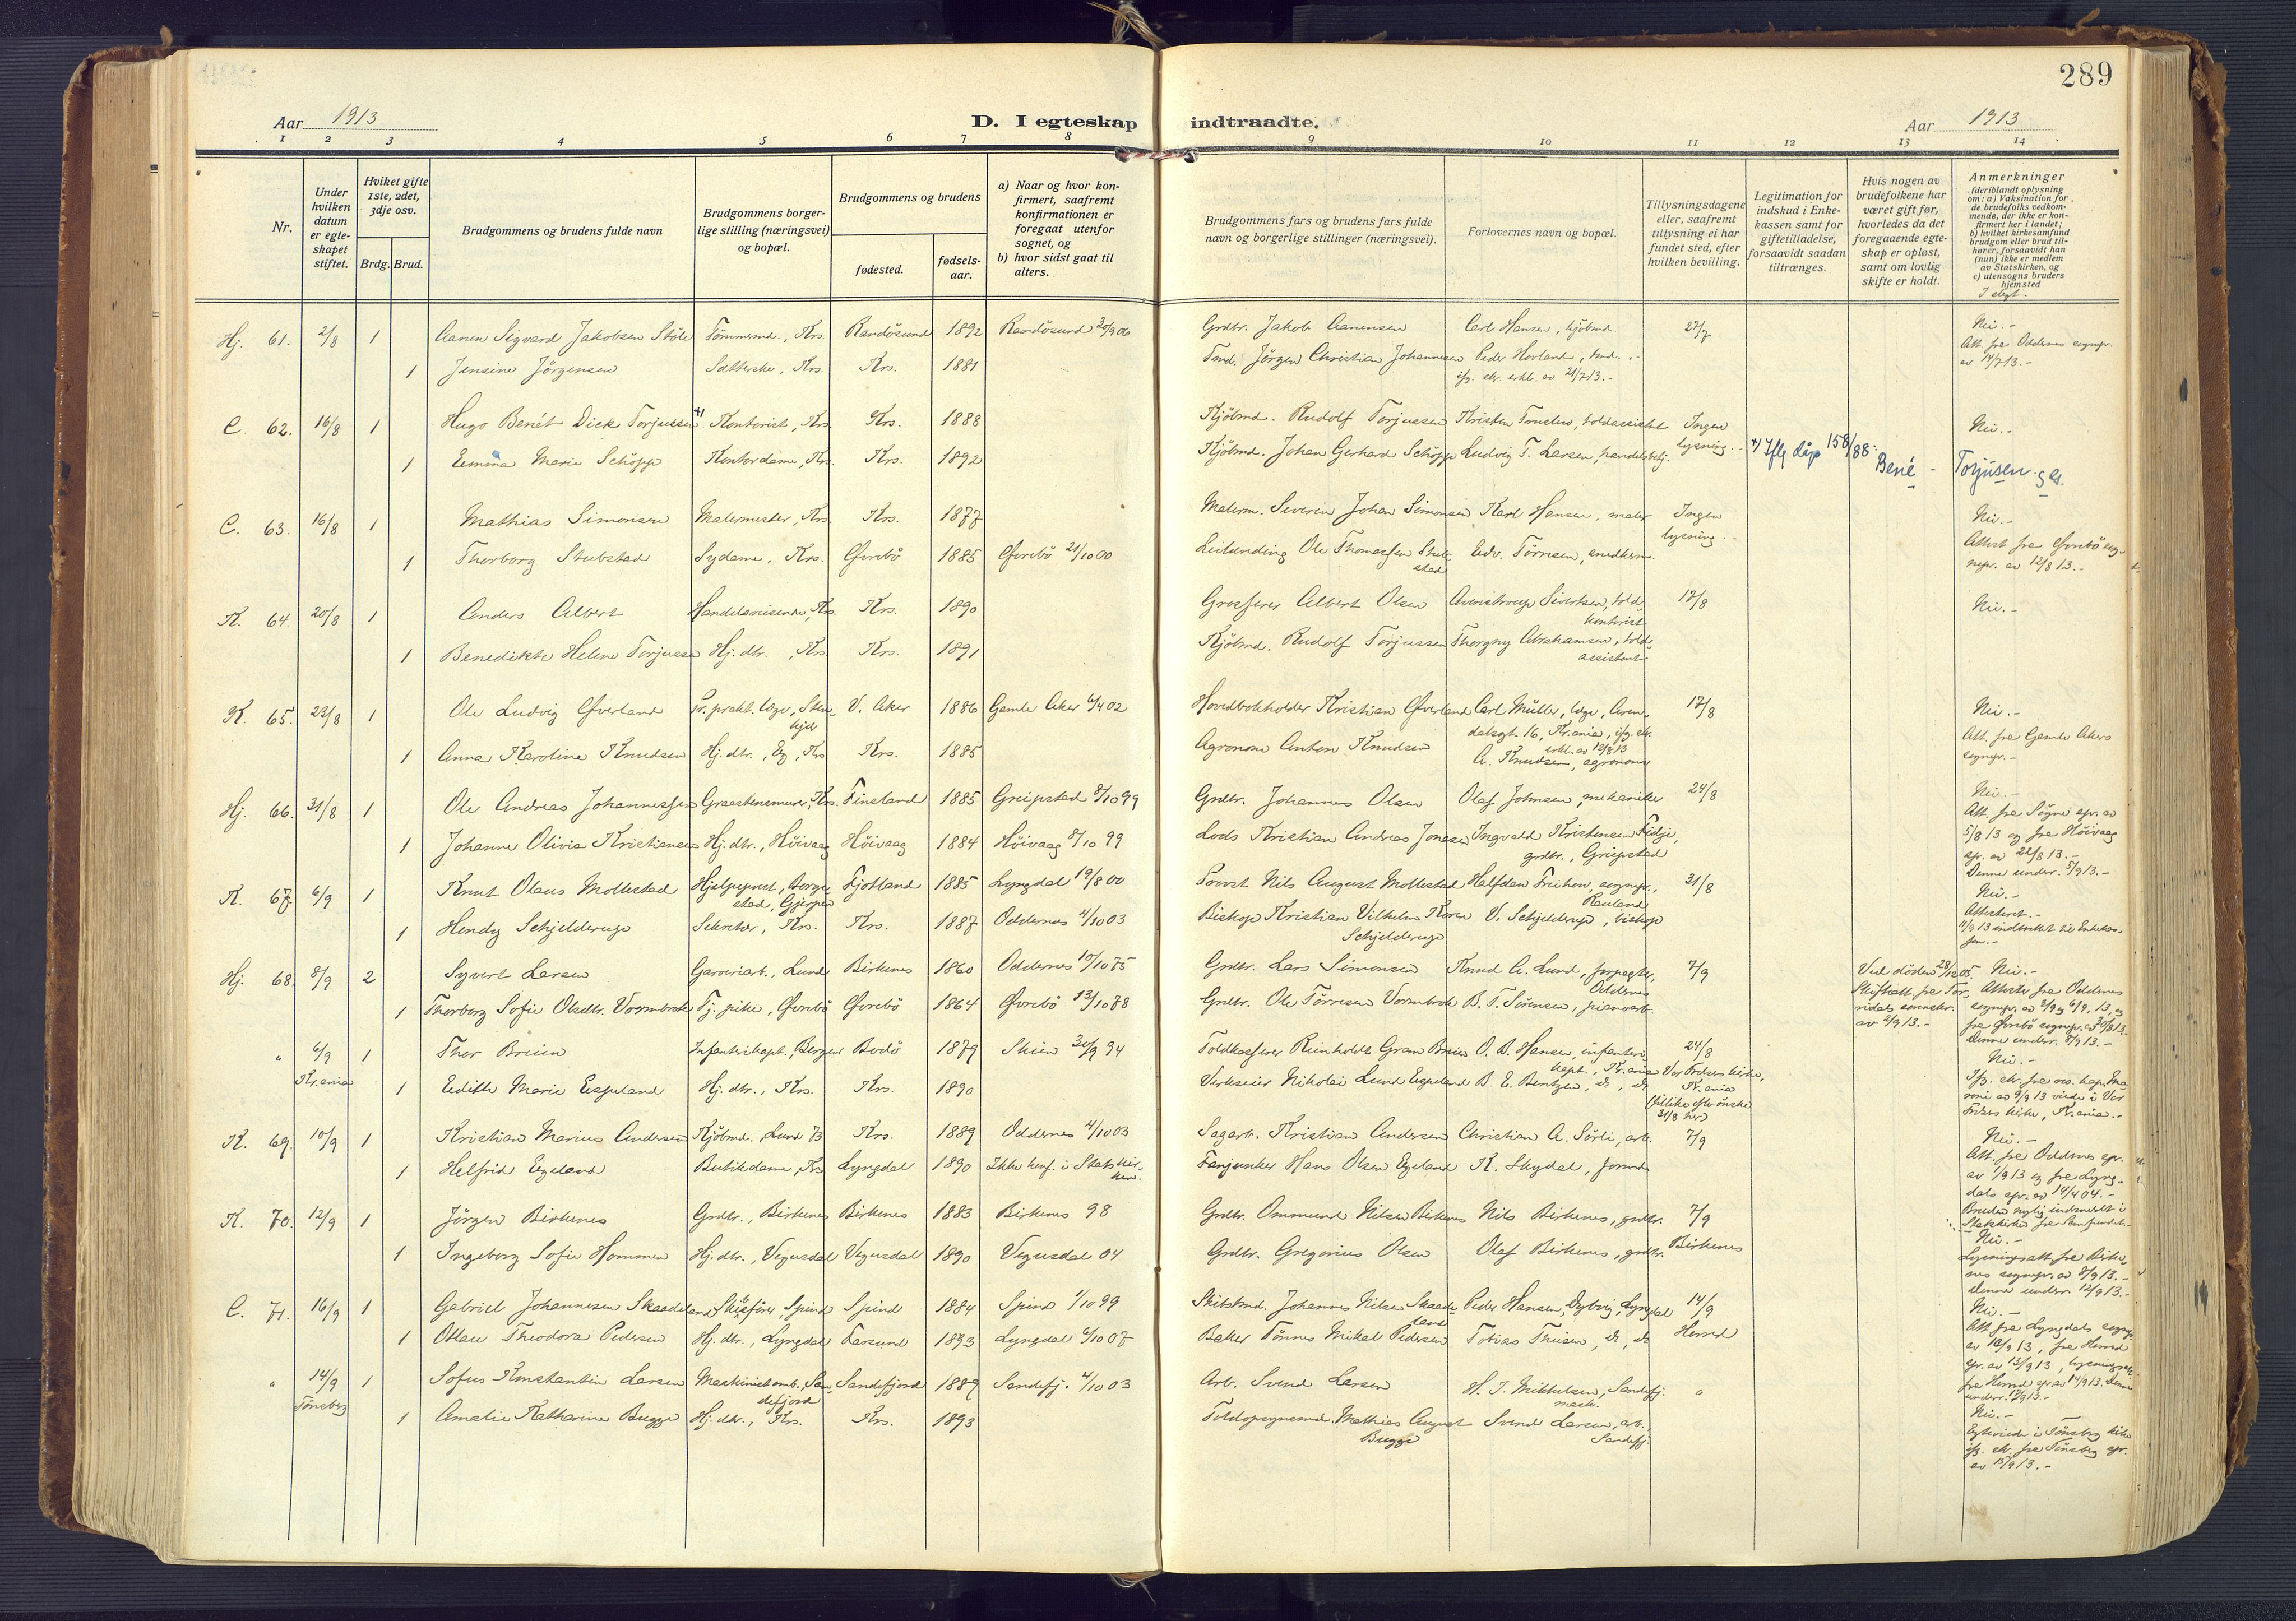 289
Aar 1913
D. I egteskap
indtraadte.
Aar 1913
1 2 3 4 5 6 7 8 9 10 11 12 13 14
Nr.
Under hvilken datum er egte-skapet stiftet.
Hviket gifte 1ste, 2det, 3dje osv.
Brdg. Brud.
Brudgommens og brudens fulde navn
Brudgommens borger-lige stilling (næringsvei) og bopæl.
Brudgommens og brudens
fødested.
fødsels-aar.
a) Naar og hvor kon-firmert, saafremt konfirmationen er foregaat utenfor sognet, og
b) hvor sidst gaat til alters.
Brudgommens fars og brudens fars fulde navn og borgerlige stillinger (næringsvei).
Forlovernes navn og bopæl.
Tillysningsdagene eller, saafremt tillysning ei har fundet sted, efter hvilken bevilling.
Legitimation for indskud i Enke-kassen samt for giftetilladelse, forsaavidt saadan tiltrænges.
Hvis nogen av brudefolkene har været gift før, hvorledes da det foregaaende egte-skap er opløst, samt om lovlig skifte er holdt.
Anmerkninger
(deriblandt oplysning om: a) Vaksination for de brudefolks vedkom-mende, der ikke er kon-firmert her i landet; b) hvilket kirkesamfund brudgom eller brud til-hører, forsaavidt han (hun) ikke er medlem av Statskirken, og c) utensogns bruders hjemsted
I slegt.
Hj. 61. 2/8 1 Aanen Sigvard Jakobsen Støle Tømmermd., Krs. Randøsund 1892 Randøsund 30/9 06 Grdbr. Jakob Aanensen Carl Hansen, kjøbmd. 27/7 Nei.-
Att. fra Oddernes sognepr. av 14/7 13.-
1 Jensine Jørgensen Sætterske, Krs. Krs. 1881 Tmd. Jörgen Christian Johannesen Peder Hovland, tmd.
ifg. skr. erkl. av 21/7 13.-
C. 62. 16/8 1 Hugo Benét Dick Torjussen +) Kontorist, Krs. Krs. 1888 Kjøbmd. Rudolf Torjussen Kristen Truslew, toldassistent Ingen lysning.- Nei.-
1 Emma Marie Schöpp Kontordame, Krs. Krs. 1892 Kjøbmd. Johan Gerhard Schöpp Ludvig T. Larsen, handelsbetj.
+) Iflg dåp 158/88: Bené - Torjusen.
C. 63. 16/8 1 Mathias Simonsen Malermester, Krs. Krs. 1877 Malerm. Severin Johan Simonsen Karl Hansen, maler Ingen lysning.- Nei.-
1 Thorborg Stubstad Sydame, Krs. Øvrebø 1885 Øvrebø 21/10 00 Leilending Ole Thomassen Stubstad Edv. Tørresen, snedkerm.
Attest fra Øvrebø sognepr. av 12/8 13.-
K. 64. 20/8 1 Anders Albert Handelsreisende, Krs. Krs. 1890 Grosserer Albert Olsen Sivertsen, toldkontorist 17/8 Nei.-
1 Benedikte Helene Torjussen Hj.dtr., Krs. Krs. 1891 Kjøbmd. Rudolf Torjussen Thorgny Abrahamsen, toldassistent
K. 65. 23/8 1 Ole Ludvig Øverland Pr. prakt. læge, Steinkjer V. Aker 1886 Gamle Aker 6/4 02 Hovedbokholder Kristian Øverland Carl Müller, læge, Arendalsgt. 16, Kr.ania, ifg. skr. erkl. av 12/8 13 17/8 Nei.-
Att. fra Gamle Akers sognepr.-
1 Anna Karoline Knudsen Hj.dtr., Eg, Krs. Krs. 1885 Agronom Anton Knudsen A. Knudsen, agronom
Hj. 66. 31/8 1 Ole Andreas Johannessen Graastensmurer, Krs. Finsland 1885 Greipstad 8/10 99 Grdbr. Johannes Olsen Olaf Johnsen, mekaniker 24/8 Nei.-
Att. fra Søgne spr. av 5/8 13 og fra Høivaag spr. av 22/8 13.-
Denne underr. 5/9 13.-
1 Johanne Olivia Kristiansen Hj.dtr., Høivaag Høivaag 1884 Høivaag 8/10 99 Lods Kristian Andreas Jonasen Ingvald Kristensen Fidje, grdbr., Greipstad
K. 67. 6/9 1 Knut Olaus Mollestad Hjelpeprest, Borgestad, Gjerpen Fjotland 1885 Lyngdal 19/8 00 Provst Nils August Mollestad Halfdan Friksen, sognepr., Rauland 31/8 Nei.-
Attestert.-
11/9 13 indbetalt til Enkekassen.-
1 Hendy Schjelderup Sekretær, Krs. Krs. 1887 Oddernes 4/10 03 Biskop Kristian Vilhelm Koren Schjelderup V. Schjelderup, biskop
Hj. 68. 8/9 2 Syvert Larsen Garveriarb., Lund Birkenes 1860 Oddernes 10/10 75 Grdbr. Lars Simonsen Knud A. Lund, forpagter, Oddernes 7/9 Ved døden 28/12 05.
Skifteatt. fra Torridals sorenskr. av 2/9 13.-
Nei.-
Attester fra Oddernes sognepr. av 3/9 og 6/9 13, og fra Øvrebø sognepr. av 30/8 13.
Denne underr. 8/9 13.-
1 Thorborg Sofie Olsdtr. Vormbrok Tj. pike, Øvrebø Øvrebø 1864 Øvrebø 13/10 78 Grdbr. Ole Tørresen Vormbrok B. T. Sørensen, pianoarb.
" 6/9 Kr.ania 1 Thor Breien Infanterikapt., Bergen Bodø 1879 Skien 30/9 94 Toldkasserer Reinholdt Gram Breien O. B. Hansen, infanterikapt., Kr.ania 24/8 Vor Frelsers kirke, Kr.ania (tillike efter ønske 31/8 her) Nei.-
Ifg. skr. fra res. kap. viede i Vor Frelsers kirke, Kr.ania.-
1 Edith Marie Espeland Hj.dtr., Krs. Krs. 1890 Verkseier Nikolai Lund Espeland B. E. Bentzen, do, do
K. 69. 10/9 1 Kristian Marius Andersen Kjøbmd. Lund Krs. 1889 Oddernes 4/10 03 Sagarb. Kristian Andersen Christian A. Sørli, arb. 7/9 Nei.-
Att. fra Oddernes spr. av 1/9 13 og fra Lyngdals spr. av 14/4 04.-
Bruden nylig indmeldt i Statskirken
1 Helfrid Egeland Butikdame, Krs Lyngdal 1890 Ikke konf. i Statskirken. Fanjunker Hans Olsen Egeland K. Skydal, formd.
K. 70. 12/9 1 Jørgen Birkenes Grdbr., Birkenes Birkenes 1883 Birkenes 98 Grdbr. Ommund Nilsen Birkenes Nils Birkenes, grdbr. 7/9 Birkenes Nei.-
Lysningsatt. fra Birkenes sognepr. av 8/9 13.-
Denne underr. 12/9 13.-
1 Ingeborg Sofie Hommen Hj.dtr., Vegusdal Vegusdal 1890 Vegusdal 04 Grdbr. Gregorius Olsen Olaf Birkenes, grdbr.
C. 71. 16/9 1 Gabriel Johannesen Skaadeland Skibsfører, Spind Spind 1884 Spind 1/10 99 Skibstmd. Johannes Nilsen Skaadeland Peder Hansen, Dybvig, Lyngdal 14/9 Herred Nei.-
Att. fra Lyngdals sognepr. av 10/9 13, fra Herred spr. av 13/9 13, lysningsatt. fra Herred spr. av 14/9 13. Denne underr. 17/9 13.-
1 Otlau Theodora Pedersen Hj.dtr., Lyngdal Farsund 1893 Lyngdal 6/10 07 Baker Tønnes Mikal Pedersen Tobias Thuesen, do, do
" 14/9 Tønsberg 1 Sofus Konstantin Larsen Maskinist omb., Sandefjord Sandefjord 1889 Sandefj. 4/10 03 Arb. Svend Larsen H. J. Mikkelsen, Sandefj. mask. " Nei.-
Egteviede i Tønsberg kirke ifg. skr. fra Tønsberg spr. av 15/9 13.-
1 Amalie Katharina Bugge Hj.dtr., Krs. Krs. 1893 Toldopsynsmd. Mathias August Bugge Svend Larsen, arb. Sandefj.